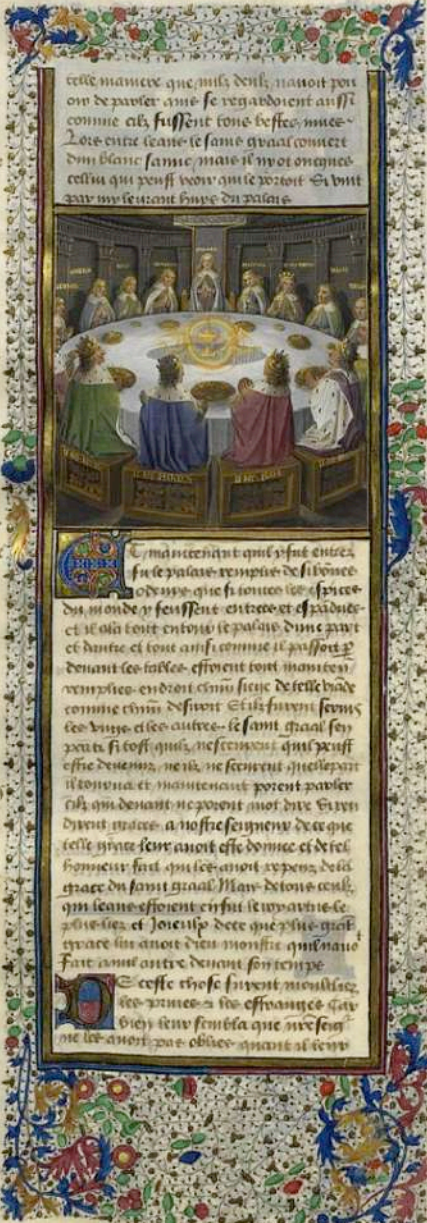 telle maniere que nulz deulz nauoit pou
oir de parler ains se regardoient aussi
comme cilz fussent tous bestes mues
Lors entre leans le saint graal couuert
dun blanc samit mais il ny ot oncques
cellui qui peust veoir qui le portoit Si vint
par my le grant huys du palais
Et maintenant quil y fut entrez
fu le palais remplis de si bonnes
odeurs que si toutes les espices
du monde y feussent entrees et espandues
et il ala tout entour le palais dune part
et dautre et tout ainsi comme il passoit p
deuant les tables estoient tout mainten
remplies endroit chun siege de telle viāde
comme chun desiroit Et quilz furent seruis
les vngs et les autres le saint graal sen
parti si tost quilz ne sceurent quil peust
estre deuenu ne ilz ne sceurent quelle part
il tourna et maintenant porent parler
cilz qui deuant ne porent mot dire Si ren
dirent graces a nostre seigneur de ce que
telle grace leur auoit este donnee et de tel
honneur fait qui les auoit repeuz de la
grace du saint graal Mais de tous ceulz
qui leans estoient en fut le roy artus le
plus liez et Joieulx de ce que plus grāt
grace lui auoit dieu monstre quil nauoit
fait a nul autre deuant son temps
De ceste chose furent moult liez
les priuez et les estranges Car
bien leur sembla que nre seig
ne les auoit pas obliez quant il leur